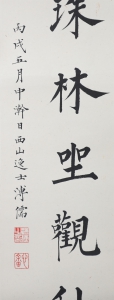 珠林坐觀
丙戌五月中澣日西山逸士溥儒